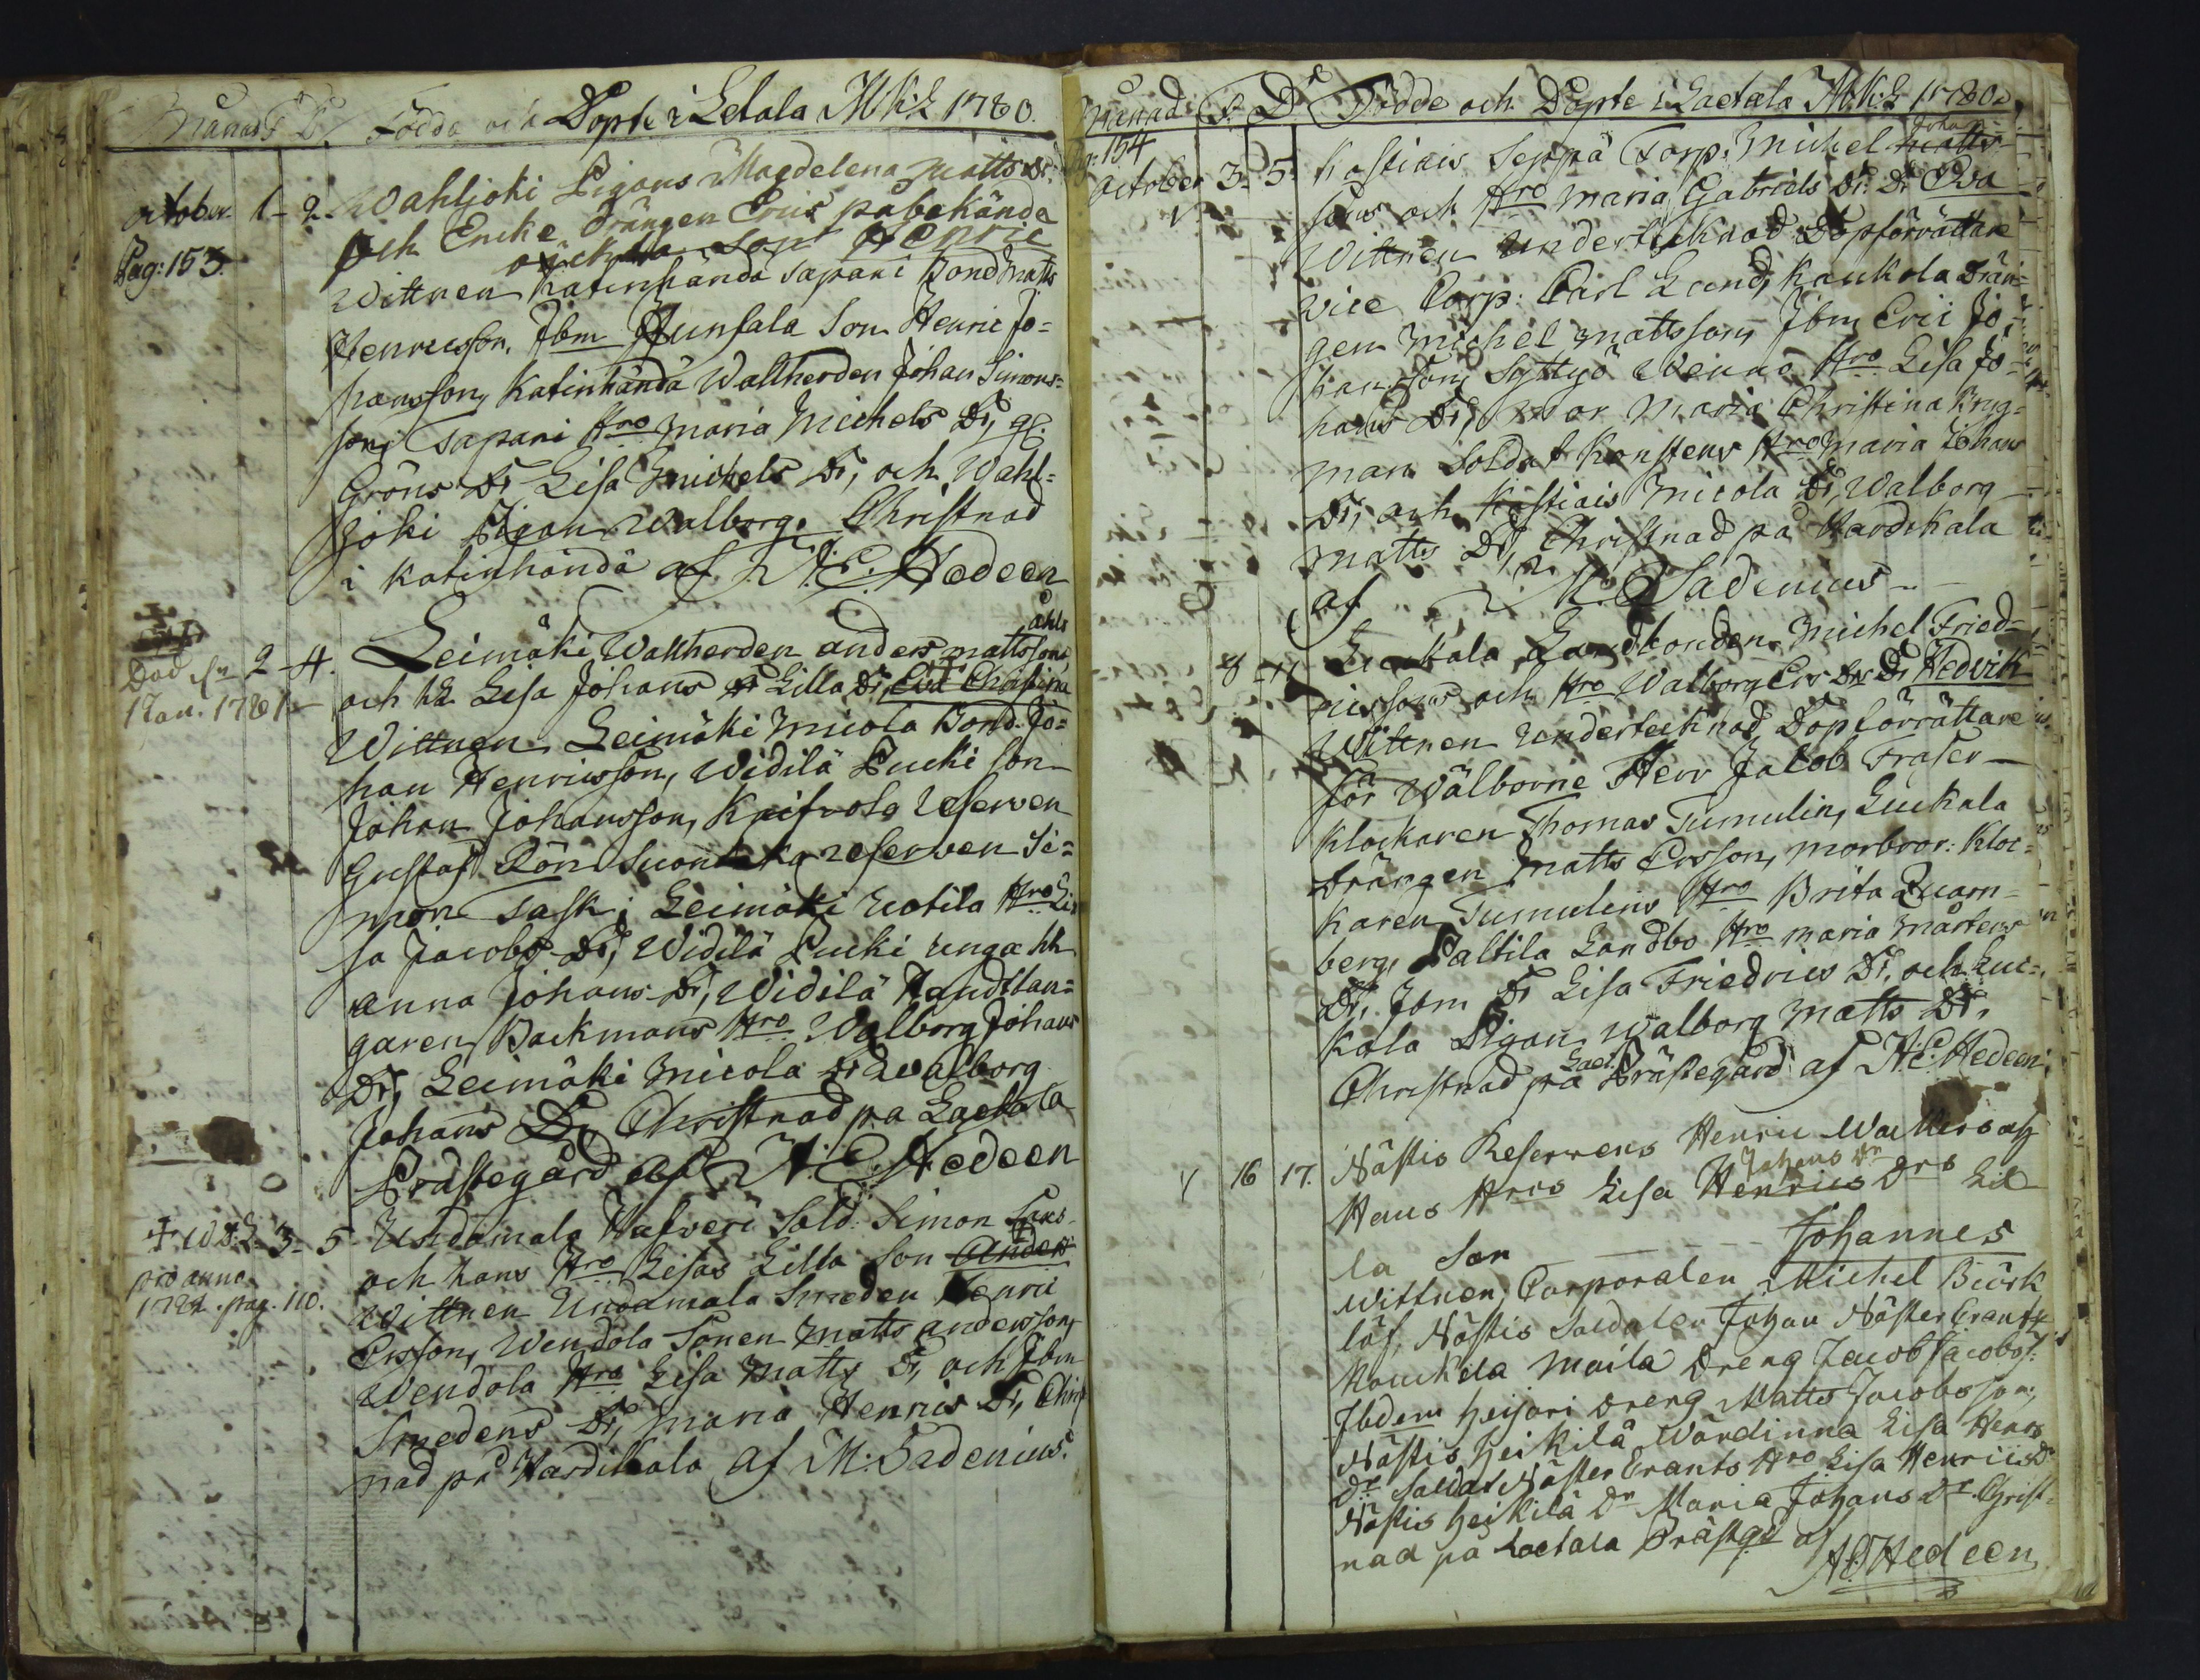 Månad F. D. Födda och Döpte i Letala Mk:L 1780.
october 1 - 2. Wahljoki Pigans Magdelena Matts Dr.
Pag: 153. och Encke drängen Erics påbekända
oäckta son Henric
Wittnen Katinhändä Sapani Bond Matts
Henricsson, Jbm Junsala Son Henric Jo=
hansson, Katinhändä Wallherden Johan Simons=
son, Tapani Hro Maria Michels Dr, gl.
Gröns Dr Lisa Michels Dr, och Wahl=
joki Pigan Walborg. Christnad
i Katinhändä af H. E. Hedeen
Död d.
1 Jan. 1781 2 - 4. Leimäki Wallherden anders mattssons
och h. Lisa Johans Dr Lilla Dr, Eva Christina
Wittnen Leimäki Micola Bond. Jo=
han Henricsson, Widilä Pucki Son
Johan Johansson, Kaifvola Reserven
Gustaf Lön Suontaka reserven Si=
mon Task, Leimäki Uotila Hro Li
sa Jacobs Dr, Widilä Pucki unga hh
anna Johans Dr, Widilä Handtlan=
garen Backmans Hro Walborg Johans
Dr, Leimäki Micola Dr Walborg
Johans Dr, Christnad på Laetala
Prästegård af H. E. Hedeen
3 - 5 Undamala Hafveri Sold: Simon
pro anno
1782. pag. 110. och hans Hro Lisas Lilla Son Anders
Wittnen Undamala Smeden Henric
Ersson, Wendola Sonen Matts andersson,
Wendola Hro Lisa Matts Dr, och Jbm
Smedens Dr, Maria Henrics Dr, Christ
nad på Hardikala af M: Sadenius.
Månad F. D. Födde och Döpte i Laetala Mk:L 1780.
pg: 154
october 3. 5. Kastiais Seppä Torp. Michel Matts
Johan
sons och Hro Maria Gabriels Dr. Dr Eva
Wittnen undertecknad Döpförrättare
vice Corp: Carl Lund, Kaukola Drän=
gen Michel Mattsson, Jbm Eric Jo=
hansson, Syttyö Weino Hro Lisa Jo=
hans Dr, Maria Christina Krug=
man Soldat Konstens Hro Maria Johans
Dr, och Kastiais Micola Dr, Walborg
Matts Dr, Christnad på Hardikala
af M. Sadenius
8 - 11 Luckala Landbonden Michel Fried=
ricssons och Hro Walborg Ers Drs Dr Hedvik
Wittnen undertecknad Döpförrättare
för Wälborne Herr Jacob Fraser
Klockaren Thomas Tumulin, Luckala
Drängen Matts Ersson, morbror: Kloc=
karen Tumulins Hro Brita Quarn=
berg, Paltila Landbo Hro Maria Mårtens
Dr. Jbm Dr Lisa Friedrics Dr, och Luc=
kala Pigan Walborg Matts Dr,
Christnad på Laet. Prästegård af H. E. Hedeen
16 17. Nästis Reservens Henric Wallers och
Hans Hros Lisa Henrics Drs Lil
Johans Dr
la Son - Johannes
Wittnen, Corporalen Michel Biörk
löf, Nästis Soldaten Johan Näster Crants
Kouckola Maila Dreng Jacob Jacobss:
Jbdem Heisari Dreng Matts Jacobsson,
Nästis Heikilä Wärdinna Lisa Henrs
Dr Soldat Näster Crants Hro Lisa Henrics Dr
Nästis Heikilä Dr Maria Johans Dr Christ=
nad på Laetala Prästgd af
H E Hedeen